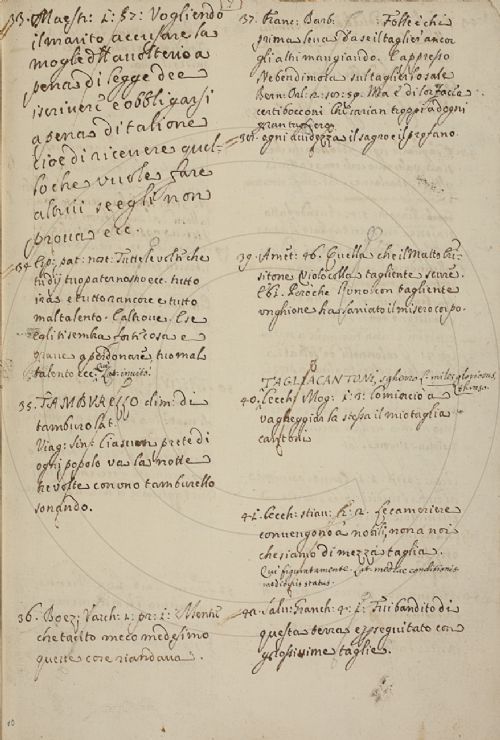 33. Maestr: 2: 57: Vogliendo
il marito accusare la
moglie d'avolterio a
pena di legge dee
iscrivere e obbligarsi
a pena di talione
cioe di ricevere quel-
lo che vuole fare
altrui se egli non
prova ecc.
34. Esp: pat: nost: Tutte le volte che
tu di' tuo paternostro ecc. tutto
ira e tutto rancore e tutto
maltalento. E altrove. E se
egli ti sembra forte cosa e
grave a perdonare tuo mal
talento ecc. Lat. invito.
35. TAMBURELLO dim: di
tamburo lat.
Viag: Sin: Ciascun prete di
ogni popolo va la notte
tre volte con uno tamburello
sonando.
36. Boez: Varch: 1: pr: 1: Mentre
che tacito meco medesimo
queste cose riandava.
37. Franc: Barb: Folle è che
prima leva da se il taglier ancor
gli altri mangiando. E appresso
Ne bendi mola sul taglier o sale
Bern: Orl: 2.
certi bocconi Che sarian troppo ad ogni
gran tagliere
38. ogni
39. Amet: 46. Quella che il Matto
tagliente scure.
Però che buno con tagliente
unghione ha saniato il misero corpo.
TAGLIACANTONI, sgherro L. miles gloriosus,
40. Cecch: Mog: 1: 3: Comincio a
vagheggiar la stessa il mio taglia
cantoni
41. Cecch: stiav: 1: 2. Le cameriere
convengono a nobili, non a noi
che siamo di mezza taglia.
Qui figuratamente. Lat. mediae conditionis
mediocris status.
42. Salv: Granch: 4: 1: Fui bandito di
questa terra e perseguitato con
grossissime taglie.
10